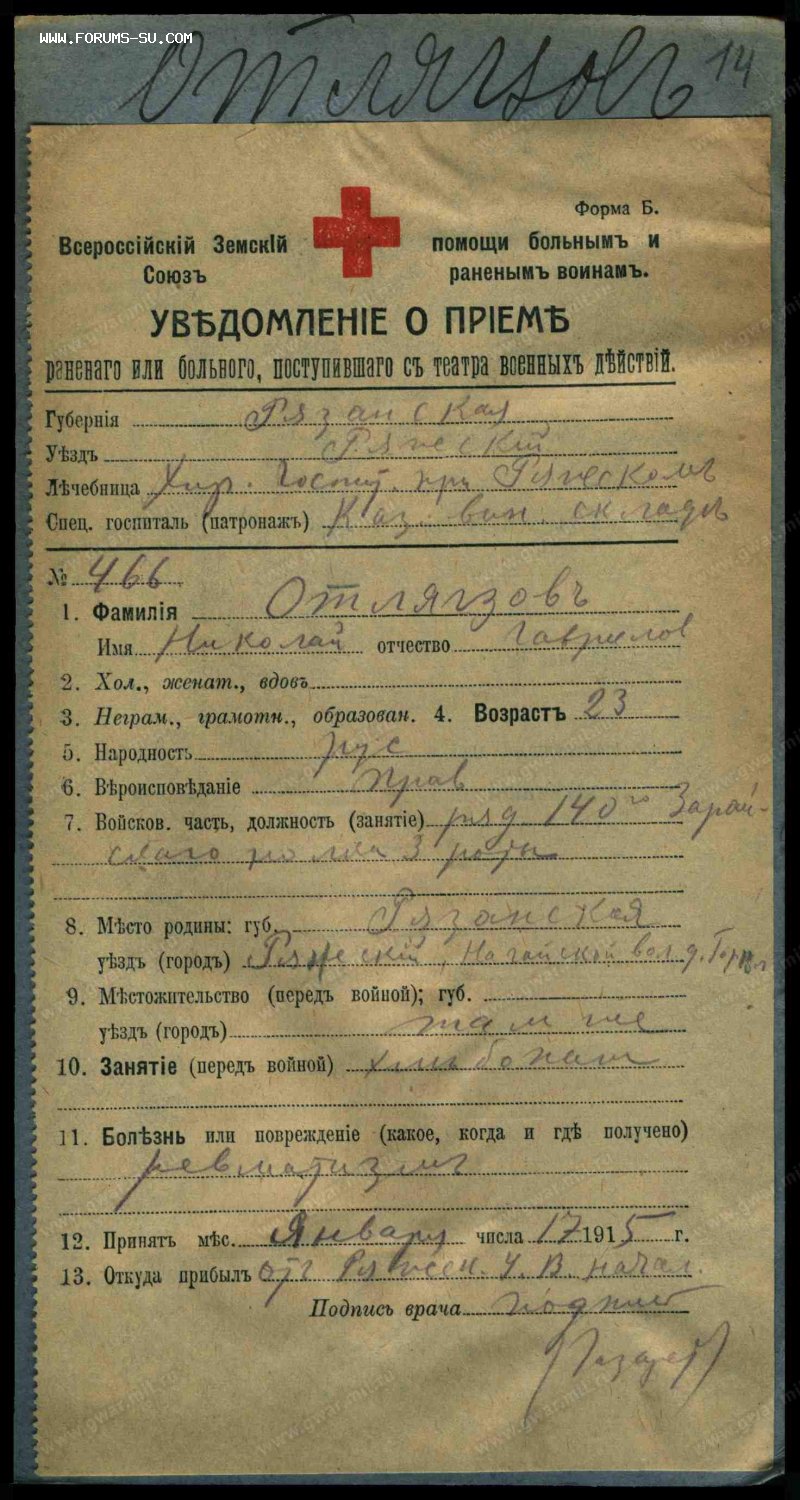 www.forums-su.com
Отлягзовъ 14
Форма Б.
Всероссійскій Земскій помощи больнымъ и
Союзъ раненымъ воинамъ.
УВѢДОМЛЕНІЕ О ПРІЕМѢ
раненаго или больного, поступившаго съ театра военныхъ дѣйствій.
Губернія Рязанская
Уѣздъ Ряжскій
Лѣчебница Хир. Госпит. при Ряжскомъ
Спец. госпиталь (патронажъ) Каз. вин. складѣ
№ 466
1. Фамилія Отлягзовъ
Имя Николай отчество Гаврилов
2. Хол., женат., вдовъ
3. Неграм., грамотн., образован. 4. Возрастъ 23
5. Народность рус
6. Вѣроисповѣданіе прав
7. Войсков. часть, должность (занятіе) ряд 140го Зарай-
скаго полка 3 роты
8. Мѣсто родины: губ. Рязанская
уѣздъ (городъ) Ряжскій, Нагайской вол д.
9. Мѣстожительство (передъ войной); губ.
уѣздъ (городъ) там же
10. Занятіе (передъ войной) хлѣбопаш
11. Болѣзнь или поврежденіе (какое, когда и гдѣ получено)
ревматизмъ
12. Принятъ мѣс. Января числа 17 1915 г.
13. Откуда прибылъ отъ Ряжск. У. В. начал.
Подпись врача